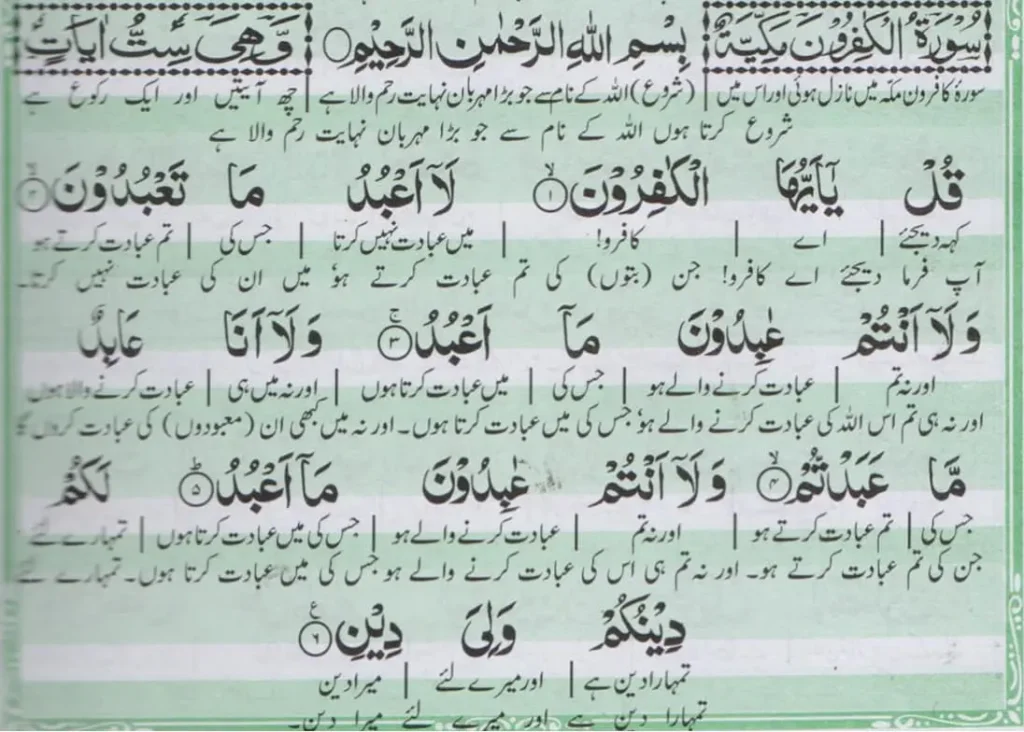 سُوْرَةُ الْكٰفِرُوْنَ مَكِّيَّةٌ بِسْمِ اللهِ الرَّحْمٰنِ الرَّحِيْمِ○ وَّهِىَ سِتُّ اٰيَاتٍ
سورۂ کافرون مکہ میں نازل ہوئی اور اس میں | (شروع) اللہ کے نام سے جو بڑا مہربان نہایت رحم والا ہے | چھ آیتیں اور ایک رکوع ہے
شروع کرتا ہوں اللہ کے نام سے جو بڑا مہربان نہایت رحم والا ہے
قُلْ يٰۤاَيُّهَا الْكٰفِرُوْنَ ۙ﴿۱﴾ لَاۤ اَعْبُدُ مَا تَعْبُدُوْنَ ۙ﴿۲﴾
کہہ دیجئے | اے | کافرو! | میں عبادت نہیں کرتا | جس کی | تم عبادت کرتے ہو
آپ فرما دیجئے اے کافرو! جن (بتوں) کی تم عبادت کرتے ہو میں ان کی عبادت نہیں کرتا۔
وَلَاۤ اَنْتُمْ عٰبِدُوْنَ مَاۤ اَعْبُدُ ۚ﴿۳﴾ وَلَاۤ اَنَا عَابِدٌ
اور نہ تم | عبادت کرنے والے ہو | جس کی | میں عبادت کرتا ہوں | اور نہ میں ہی | عبادت کرنے والا ہوں
اور نہ ہی تم اس اللہ کی عبادت کرنے والے ہو جس کی میں عبادت کرتا ہوں۔ اور نہ میں کبھی ان (معبودوں) کی عبادت کروں گا
مَّا عَبَدْتُّمْ ۙ﴿۴﴾ وَلَاۤ اَنْتُمْ عٰبِدُوْنَ مَاۤ اَعْبُدُ ؕ﴿۵﴾ لَكُمْ
جس کی | تم عبادت کرتے ہو | اور نہ تم | عبادت کرنے والے ہو | جس کی میں عبادت کرتا ہوں | تمہارے لئے
جن کی تم عبادت کرتے ہو۔ اور نہ تم ہی اس کی عبادت کرنے والے ہو جس کی میں عبادت کرتا ہوں۔ تمہارے لئے
دِيْنُكُمْ وَلِىَ دِيْنِ ﴿۶﴾ ع
تمہارا دین ہے | اور میرے لئے | میرا دین
تمہارا دین ہے اور میرے لئے میرا دین۔